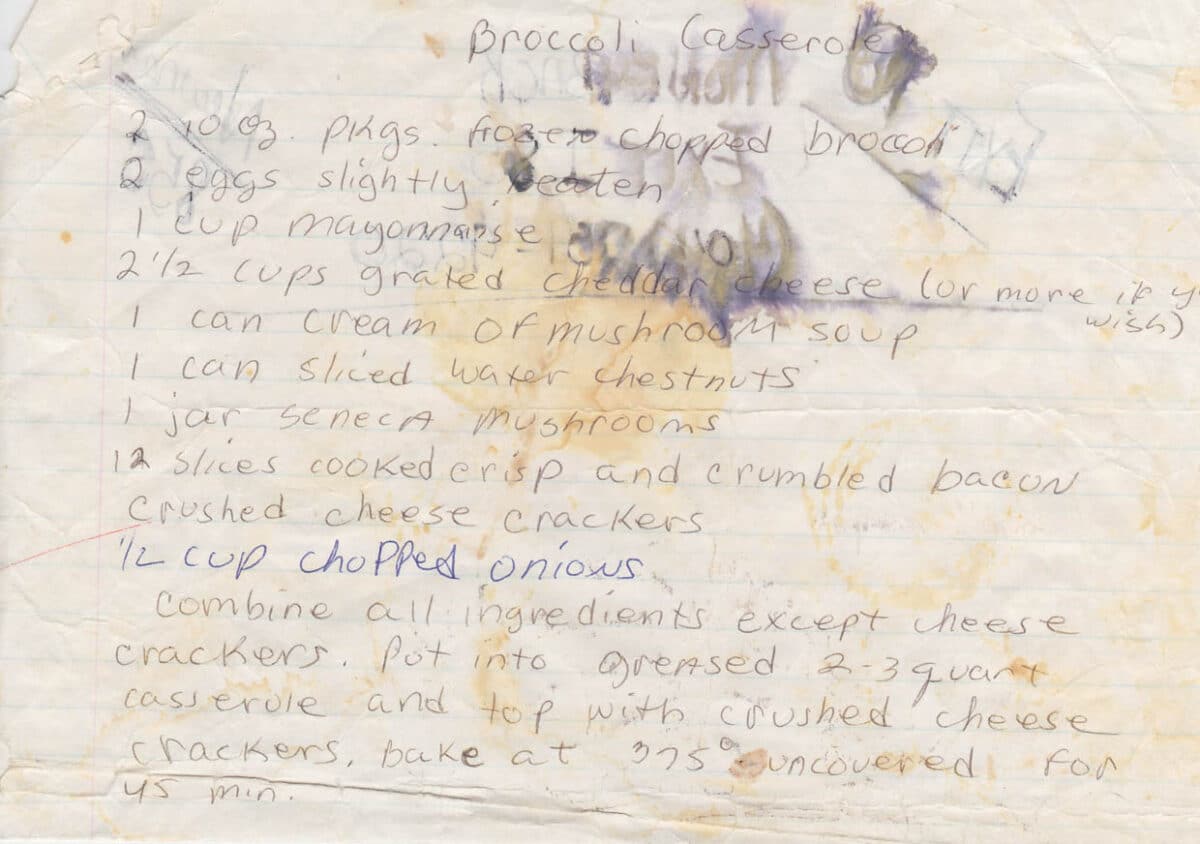 Broccoli Casserole
2 10 oz. pkgs. frozen chopped broccoli
2 eggs slightly beaten
1 cup mayonnaise
2 1/2 cups grated cheddar cheese (or more if y
wish)
1 can cream of mushroom soup
1 can sliced water chestnuts
1 jar Seneca mushrooms
12 slices cooked crisp and crumbled bacon
Crushed cheese crackers
1/2 cup chopped onions
Combine all ingredients except cheese
crackers. Put into greased 2-3 quart
casserole and top with crushed cheese
crackers, bake at 375° uncovered for
45 min.